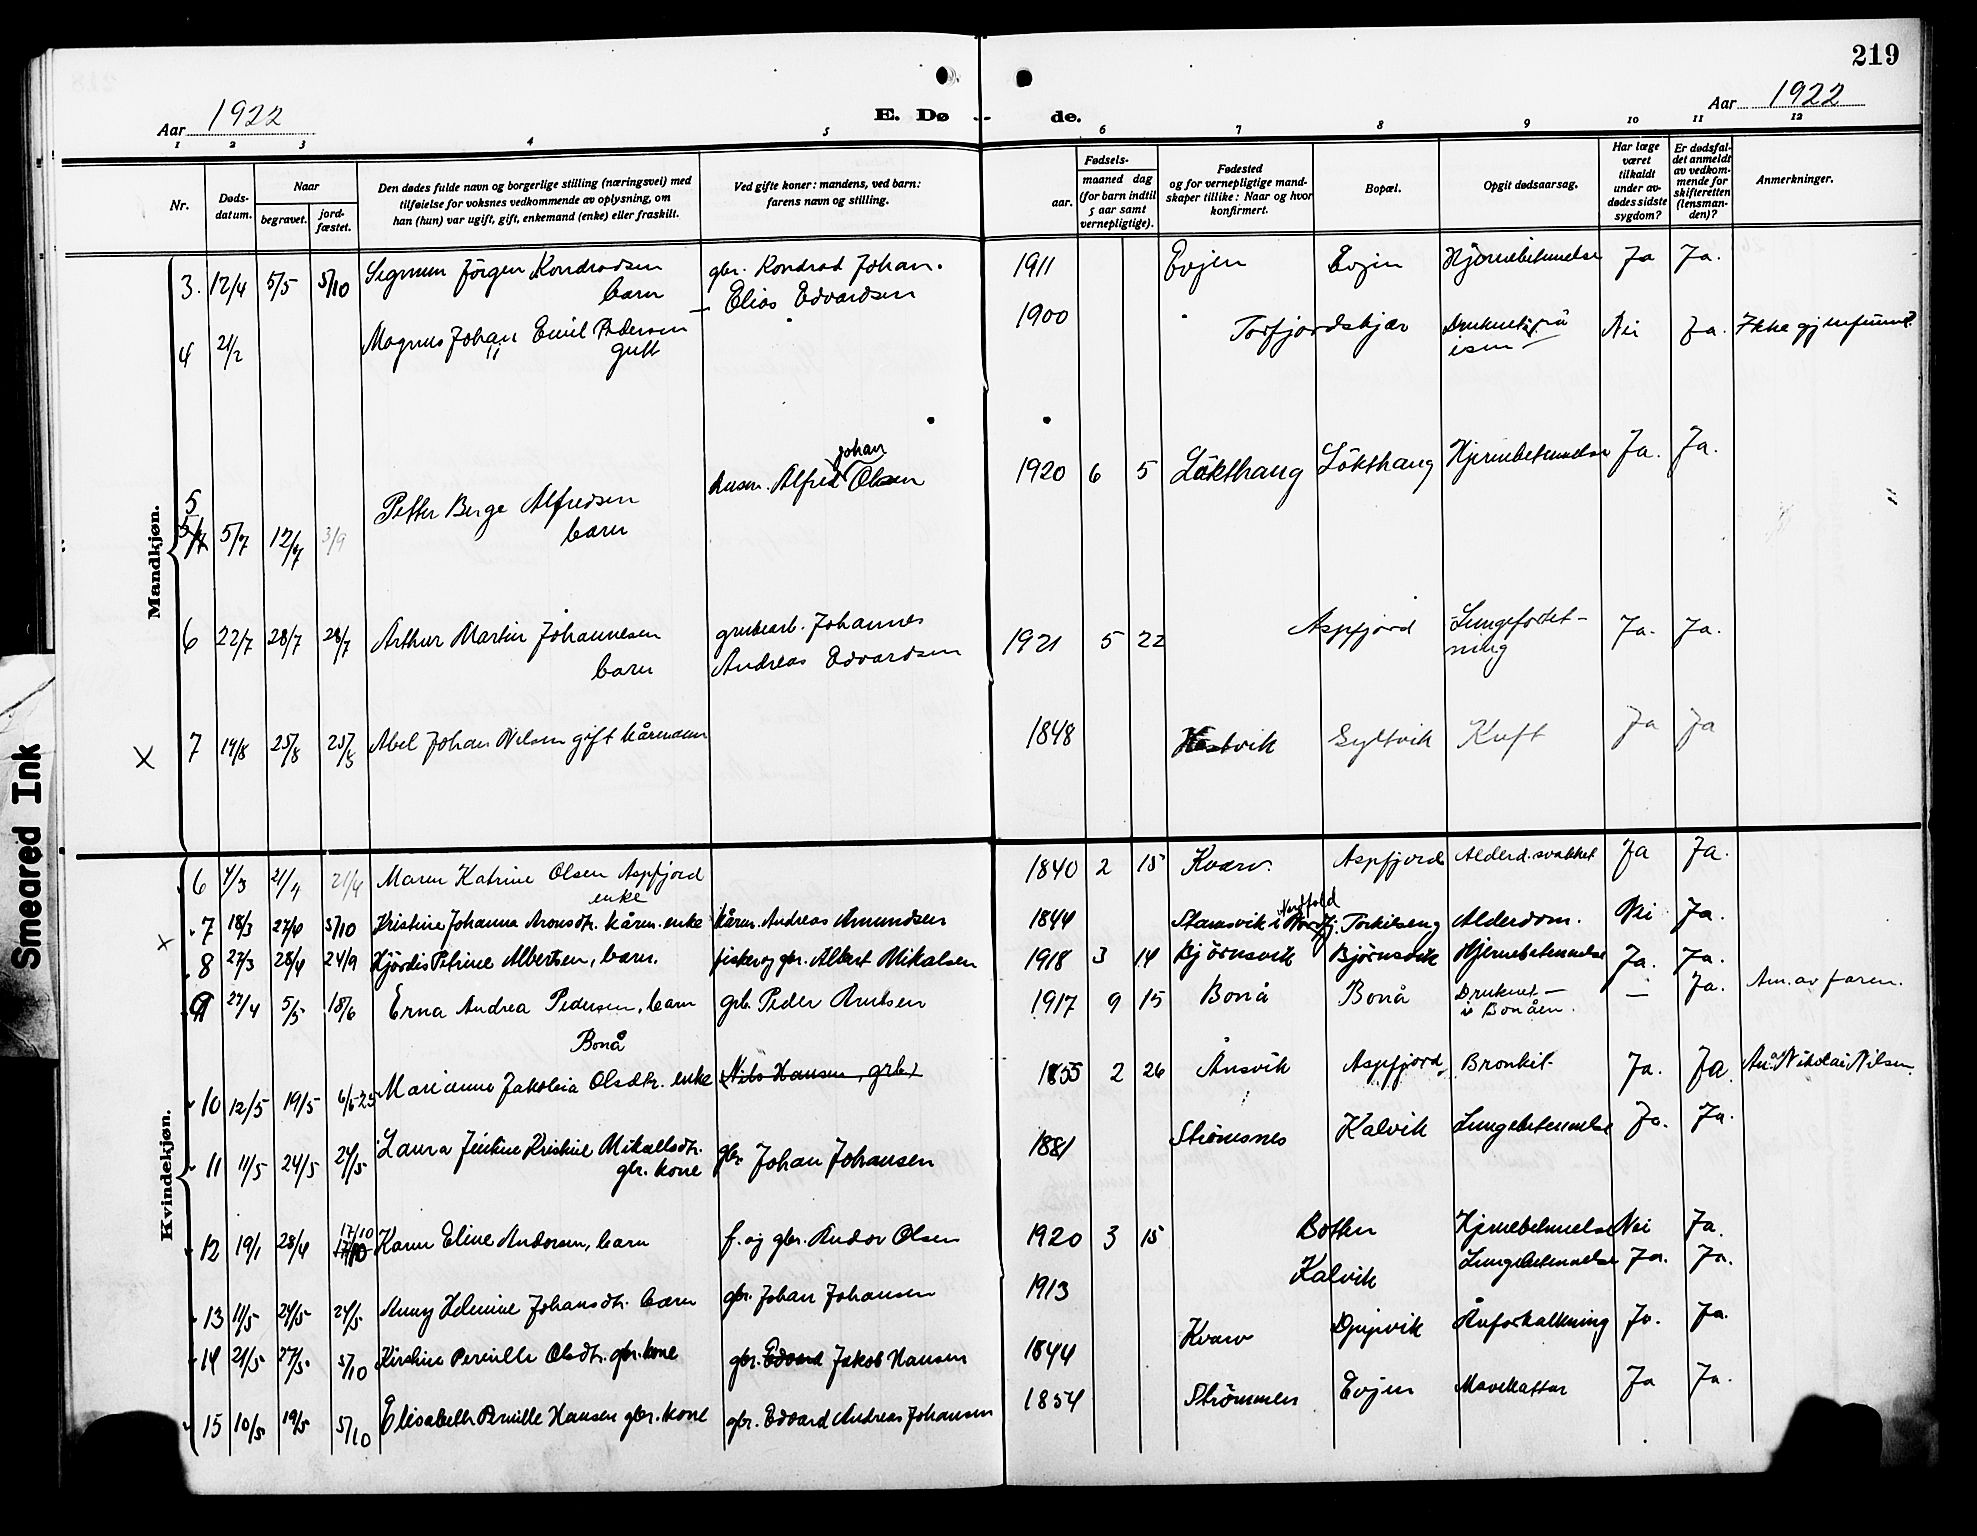 219
Aar 1922
E. Dø de.
Aar 1922
1 2 3 4 5 6 7 8 9 10 11 12
Nr.
Døds-
datum.
Naar
begravet.
jord-
fæstet.
Den dødes fulde navn og borgerlige stilling (næringsvei) med
tilføielse for voksnes vedkommende av oplysning, om
han (hun) var ugift, gift, enkemand (enke) eller fraskilt.
Ved gifte koner: mandens, ved barn:
farens navn og stilling.
Fødsels-
aar.
maaned dag
(for barn indtil
5 aar samt
vernepligtige).
Fødested
og for vernepligtige mand-
skaper tillike: Naar og hvor
konfirmert.
Bopæl.
Opgit dødsaarsag.
Har læge
været
tilkaldt
under av-
dødes sidste
sygdom?
Er dødsfal-
det anmeldt
av vedkom-
mende for
skifteretten
(lensman-
den)?
Anmerkninger.
Mandkjøn.
3. 12/4 5/5 5/10 Sigmun Jörgen Kondradsen gbr. Kondrad Johan. 1911 Evjen Evjen Hjernebetennelse Ja Ja.
barn – Elias Edvardsen
4 21/2 Magnus Johan Emil Pedersen 1900 Torfjordskjær Druknet på Nei Ja. Ikke gjenfunnet
gutt isen
5 5/7 12/7 3/9 Petter Berge Alfredsen Alfred Johan Olsen 1920 6 5 Lökthaug Lökthaug Hjernebetennelse Ja. Ja.
barn
6 22/7 28/7 28/7 Arthur Martin Johannesen grubearb. Johannes 1921 5 22 Aspfjord Lungefortet- Ja. Ja.
barn Andreas Edvardsen ning
X 7 19/8 25/8 Abel Johan Nilsen gift kårmann 1848 Gyltvik Kreft Ja Ja
Kvindekjøn.
6 4/3 21/4 21/4 Maren Katrine Olsen Aspfjord 1840 2 15 Kvarv. Aspfjord Alderd.svakhet Ja Ja.
enke
x 7 18/3 27/4 5/10 Kristine Johanna Aronsdtr. kårm. enke kårm. Andreas Amundsen 1844 Stamsvik i Nordfold Torkilseng Alderdom. Nei Ja.
8 27/3 28/4 24/9 Hjördis Petrine Albertsen, barn. fisker og gbr. Albert Mikalsen 1918 3 14 Bjørnsvik Bjørnsvik Hjernebetennelse Ja. Ja.
9 27/4 5/5 18/6 Erna Andrea Pedersen, barn grb. Peder Arntsen 1917 9 15 Bonå Bonå Druknet – — Ja. Anm. av faren.
Bonå i Bonåen.
10 12/5 19/5 6/6-23 Marianne Jakobia Olsdtr. enke Nils Hansen, grb. 1855 2 26 Ånsvik Aspfjord Bronkit Ja. Ja. Anm. Nikolai Nilsen.
11 11/5 24/5 24/5 Laura Jentine Kristine Mikaelsdtr. gbr. Johan Johansen 1881 Strømsnes Kalvik Lungebetennelse Ja. Ja.
gbr. kone
12 19/1 28/4 17/10 Karen Eline Andorsen, barn f. og gbr. Andor Olsen 1920 3 15 Botten Hjernebetennelse Nei Ja.
13 11/5 24/5 24/5 Anny Helmine Johansdtr. barn gbr. Johan Johansen 1913 Kalvik Lungebetennelse Ja. Ja.
14 21/5 27/5 5/10 Kirstine Pernille Olsdtr. gbr. kone gbr. Edvard Jakob Hansen 1844 Kvarv Djupvik Åreforkalkning Ja. Ja.
15 10/5 19/5 5/10 Elisabeth Pernille Hansen gbr. kone gbr. Edvard Andreas Johansen 1854 Strömmen Evjen Mavekattar Ja Ja.
Smeared Ink